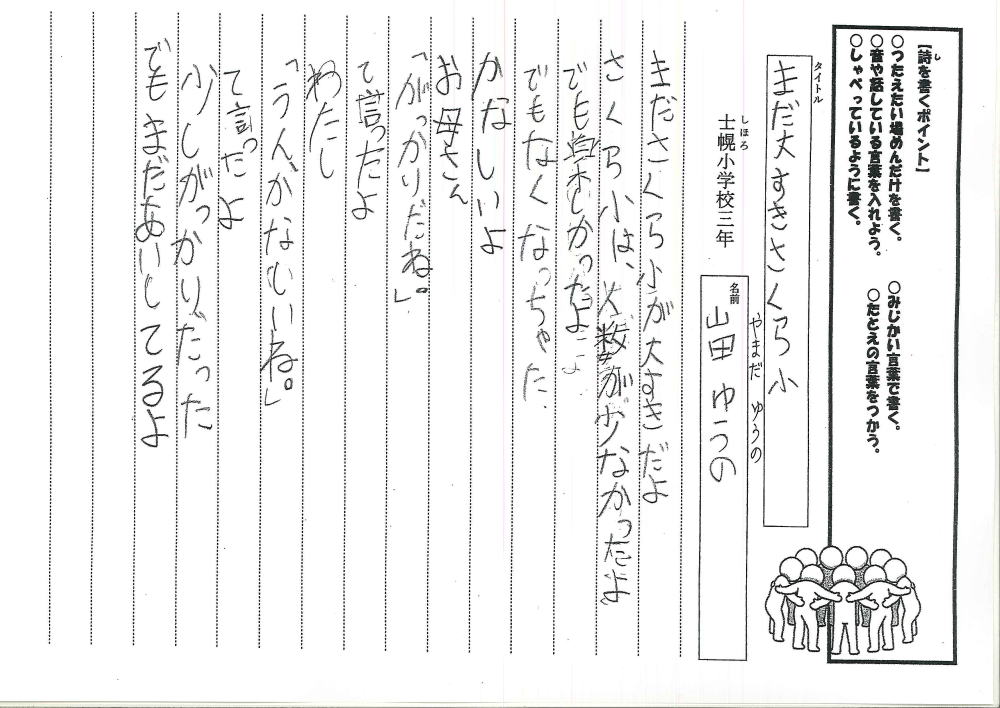 【詩を書くポイント】
し
○つたえたい場めんだけを書く。
○みじかい言葉で書く。
○音や話している言葉を入れよう。
○たとえの言葉をつかう。
○しゃべっているように書く。
タイトル
まだ大すきさくら小
しほろ
士幌小学校三年
名前
やまだ ゆうの
山田 ゆうの
まださくら小が大すきだよ
さくら小は、人数が少なかったよ
でも楽しかったよ
でもなくなっちゃた
かなしいよ
お母さん
「がっかりだね。」
て言ったよ
わたし
「うん、かなしいね。」
て言ったよ
少しがっかりだった
でもまだあいしてるよ